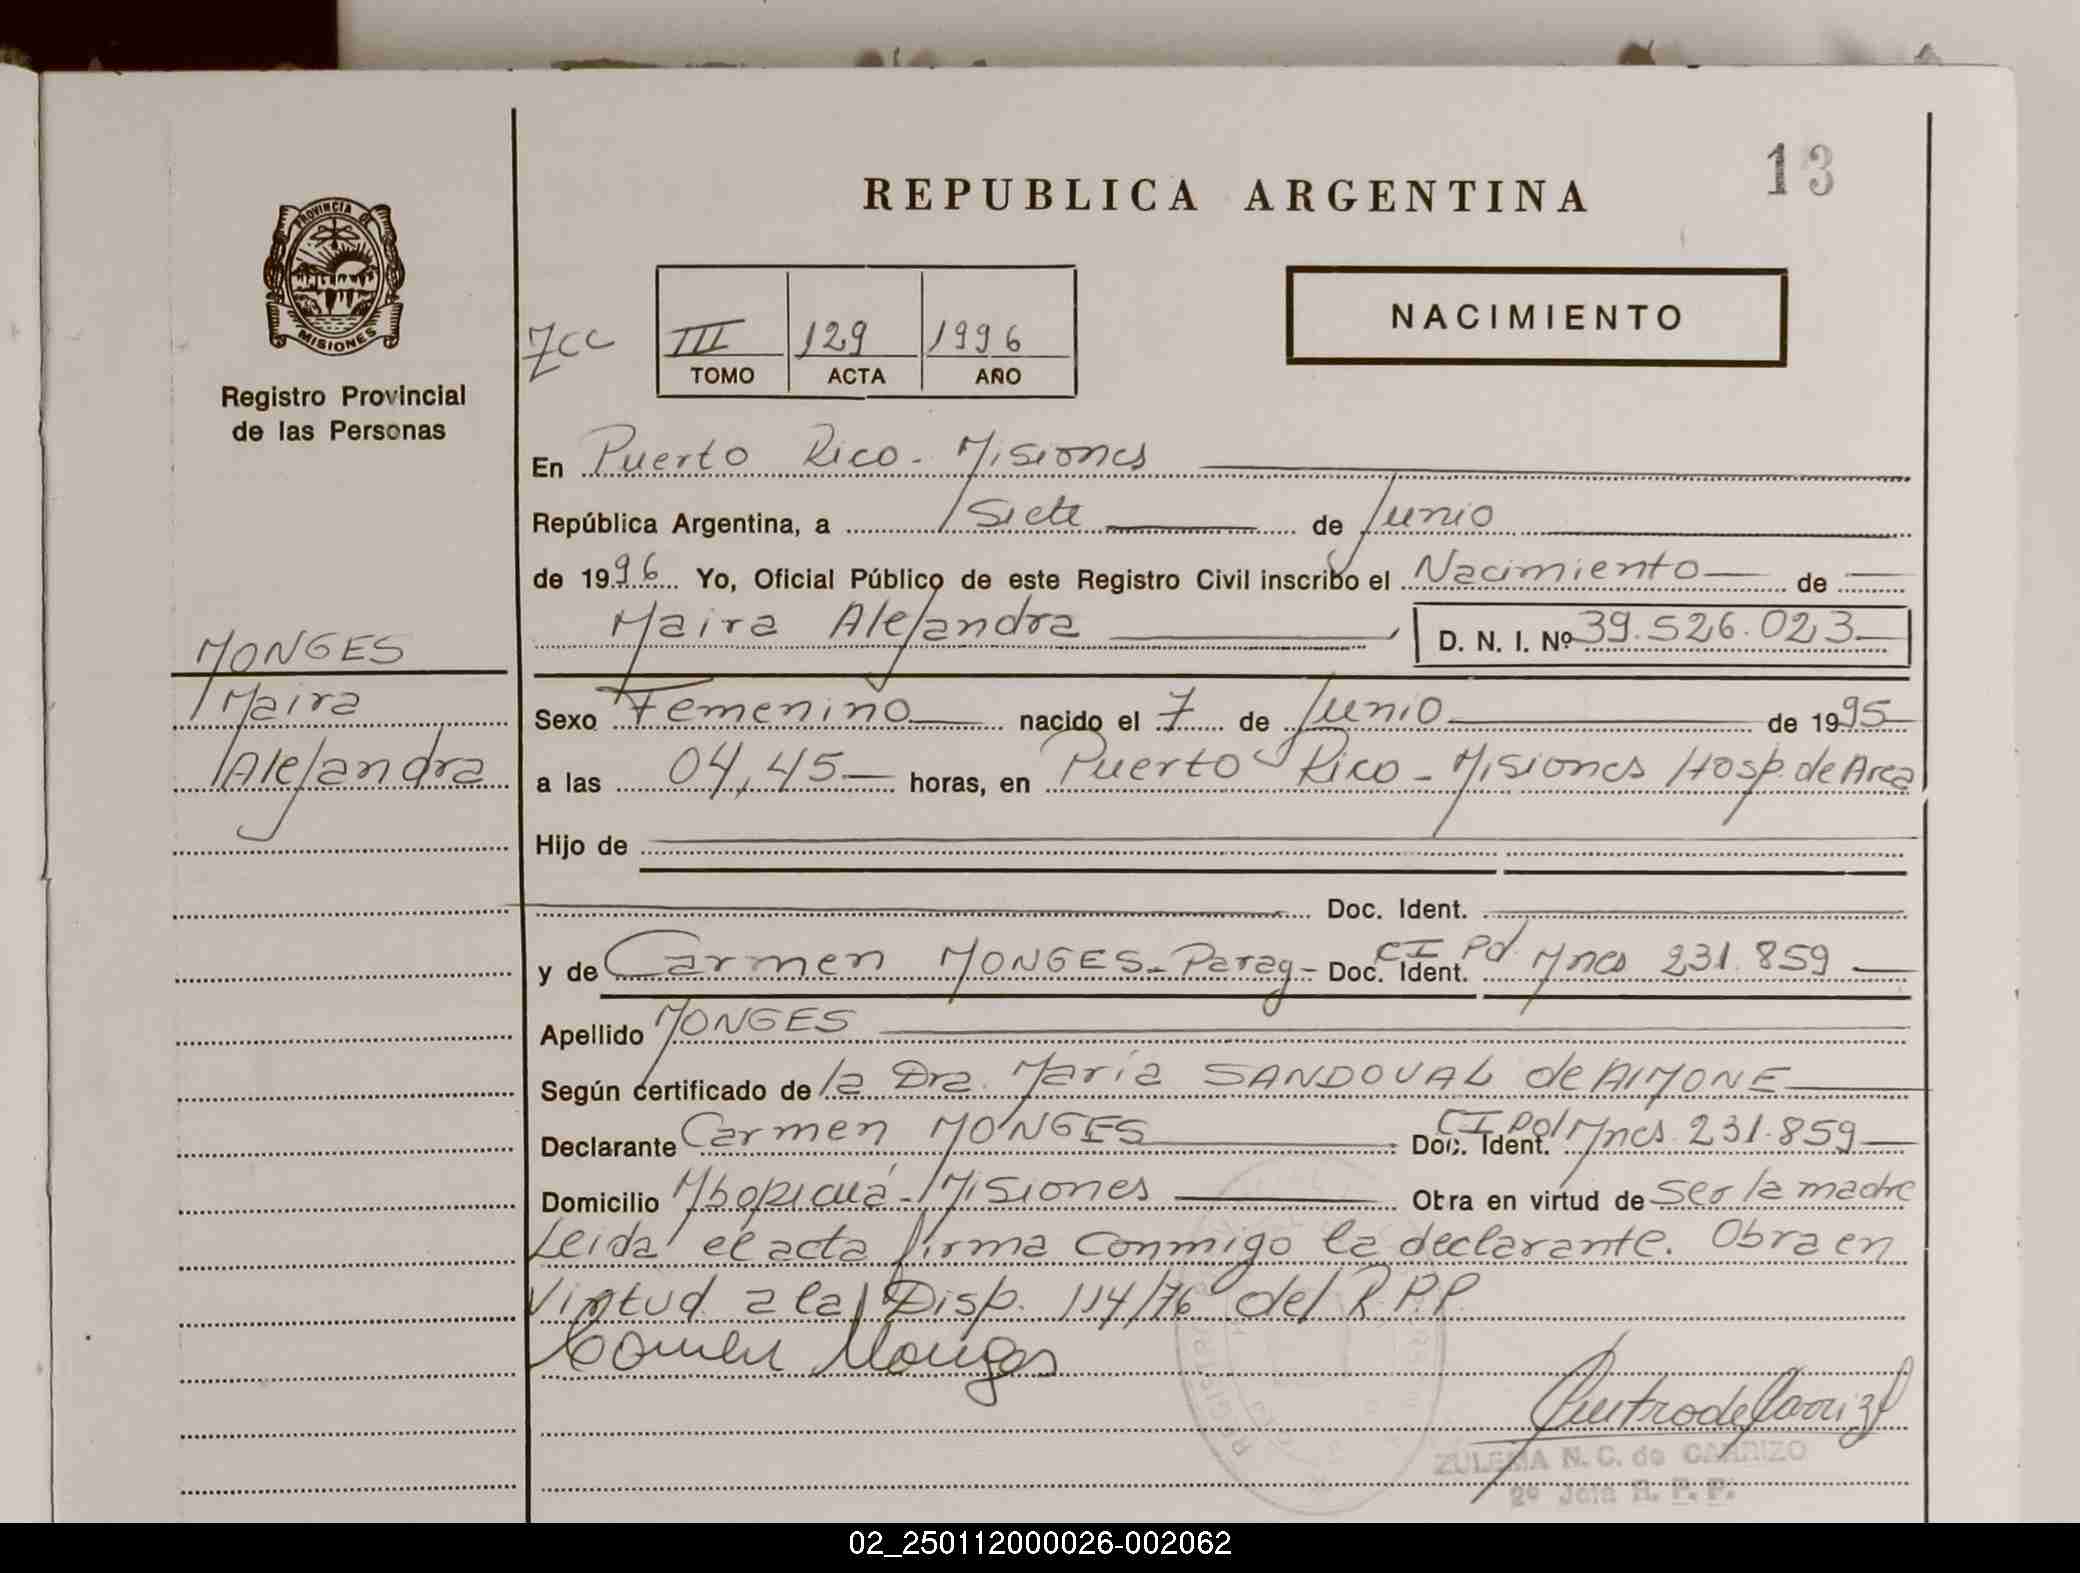 REPUBLICA ARGENTINA
13
PROVINCIA DE
MISIONES
Registro Provincial
de las Personas
III 129 1996
TOMO ACTA AÑO
NACIMIENTO
En Puerto Rico - Misiones
República Argentina, a Siete de Junio
de 1996 Yo, Oficial Público de este Registro Civil inscribo el Nacimiento de
Maira Alejandra D. N. I. Nº 39.526.023
MONGES
Maira
Alejandra
Sexo Femenino nacido el 7 de Junio de 1995
a las 04,45 horas, en Puerto Rico - Misiones Hosp. de Area
Hijo de
Doc. Ident.
y de Carmen MONGES - Parag - Doc. Ident. CI Pol Mnes 231.859
Apellido MONGES
Según certificado de la Dra. María SANDOVAL de AIMONE
Declarante Carmen MONGES Doc. Ident. CI Pol Mnes 231.859
Domicilio Mbopicuá - Misiones Obra en virtud de ser la madre
Leida el acta firma conmigo la declarante. Obra en
virtud a la Disp. 114/76 del R.P.P.
Carmen Monges
ZULEMA N. C. de CARRIZO
2º Jefa R. P. P.
02_250112000026-002062